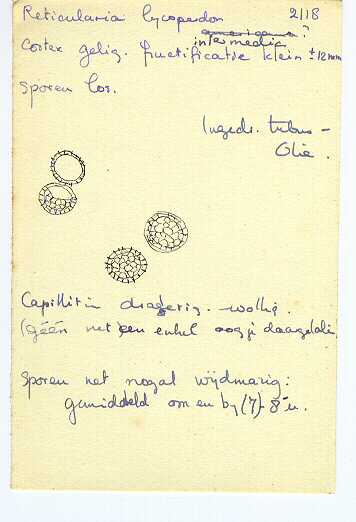 Reticularia lycoperdon 2/18
americana?
intermedia
Cortex gelig. fructificatie klein ± 12 mm
sporen los.
Ingedr. tubus -
Olie.
Capillitium draderig - wollig.
(géén net) een enkel oogje daargelaten
sporen net nogal wijdmazig:
gemiddeld om en bij (7)-8 µ.